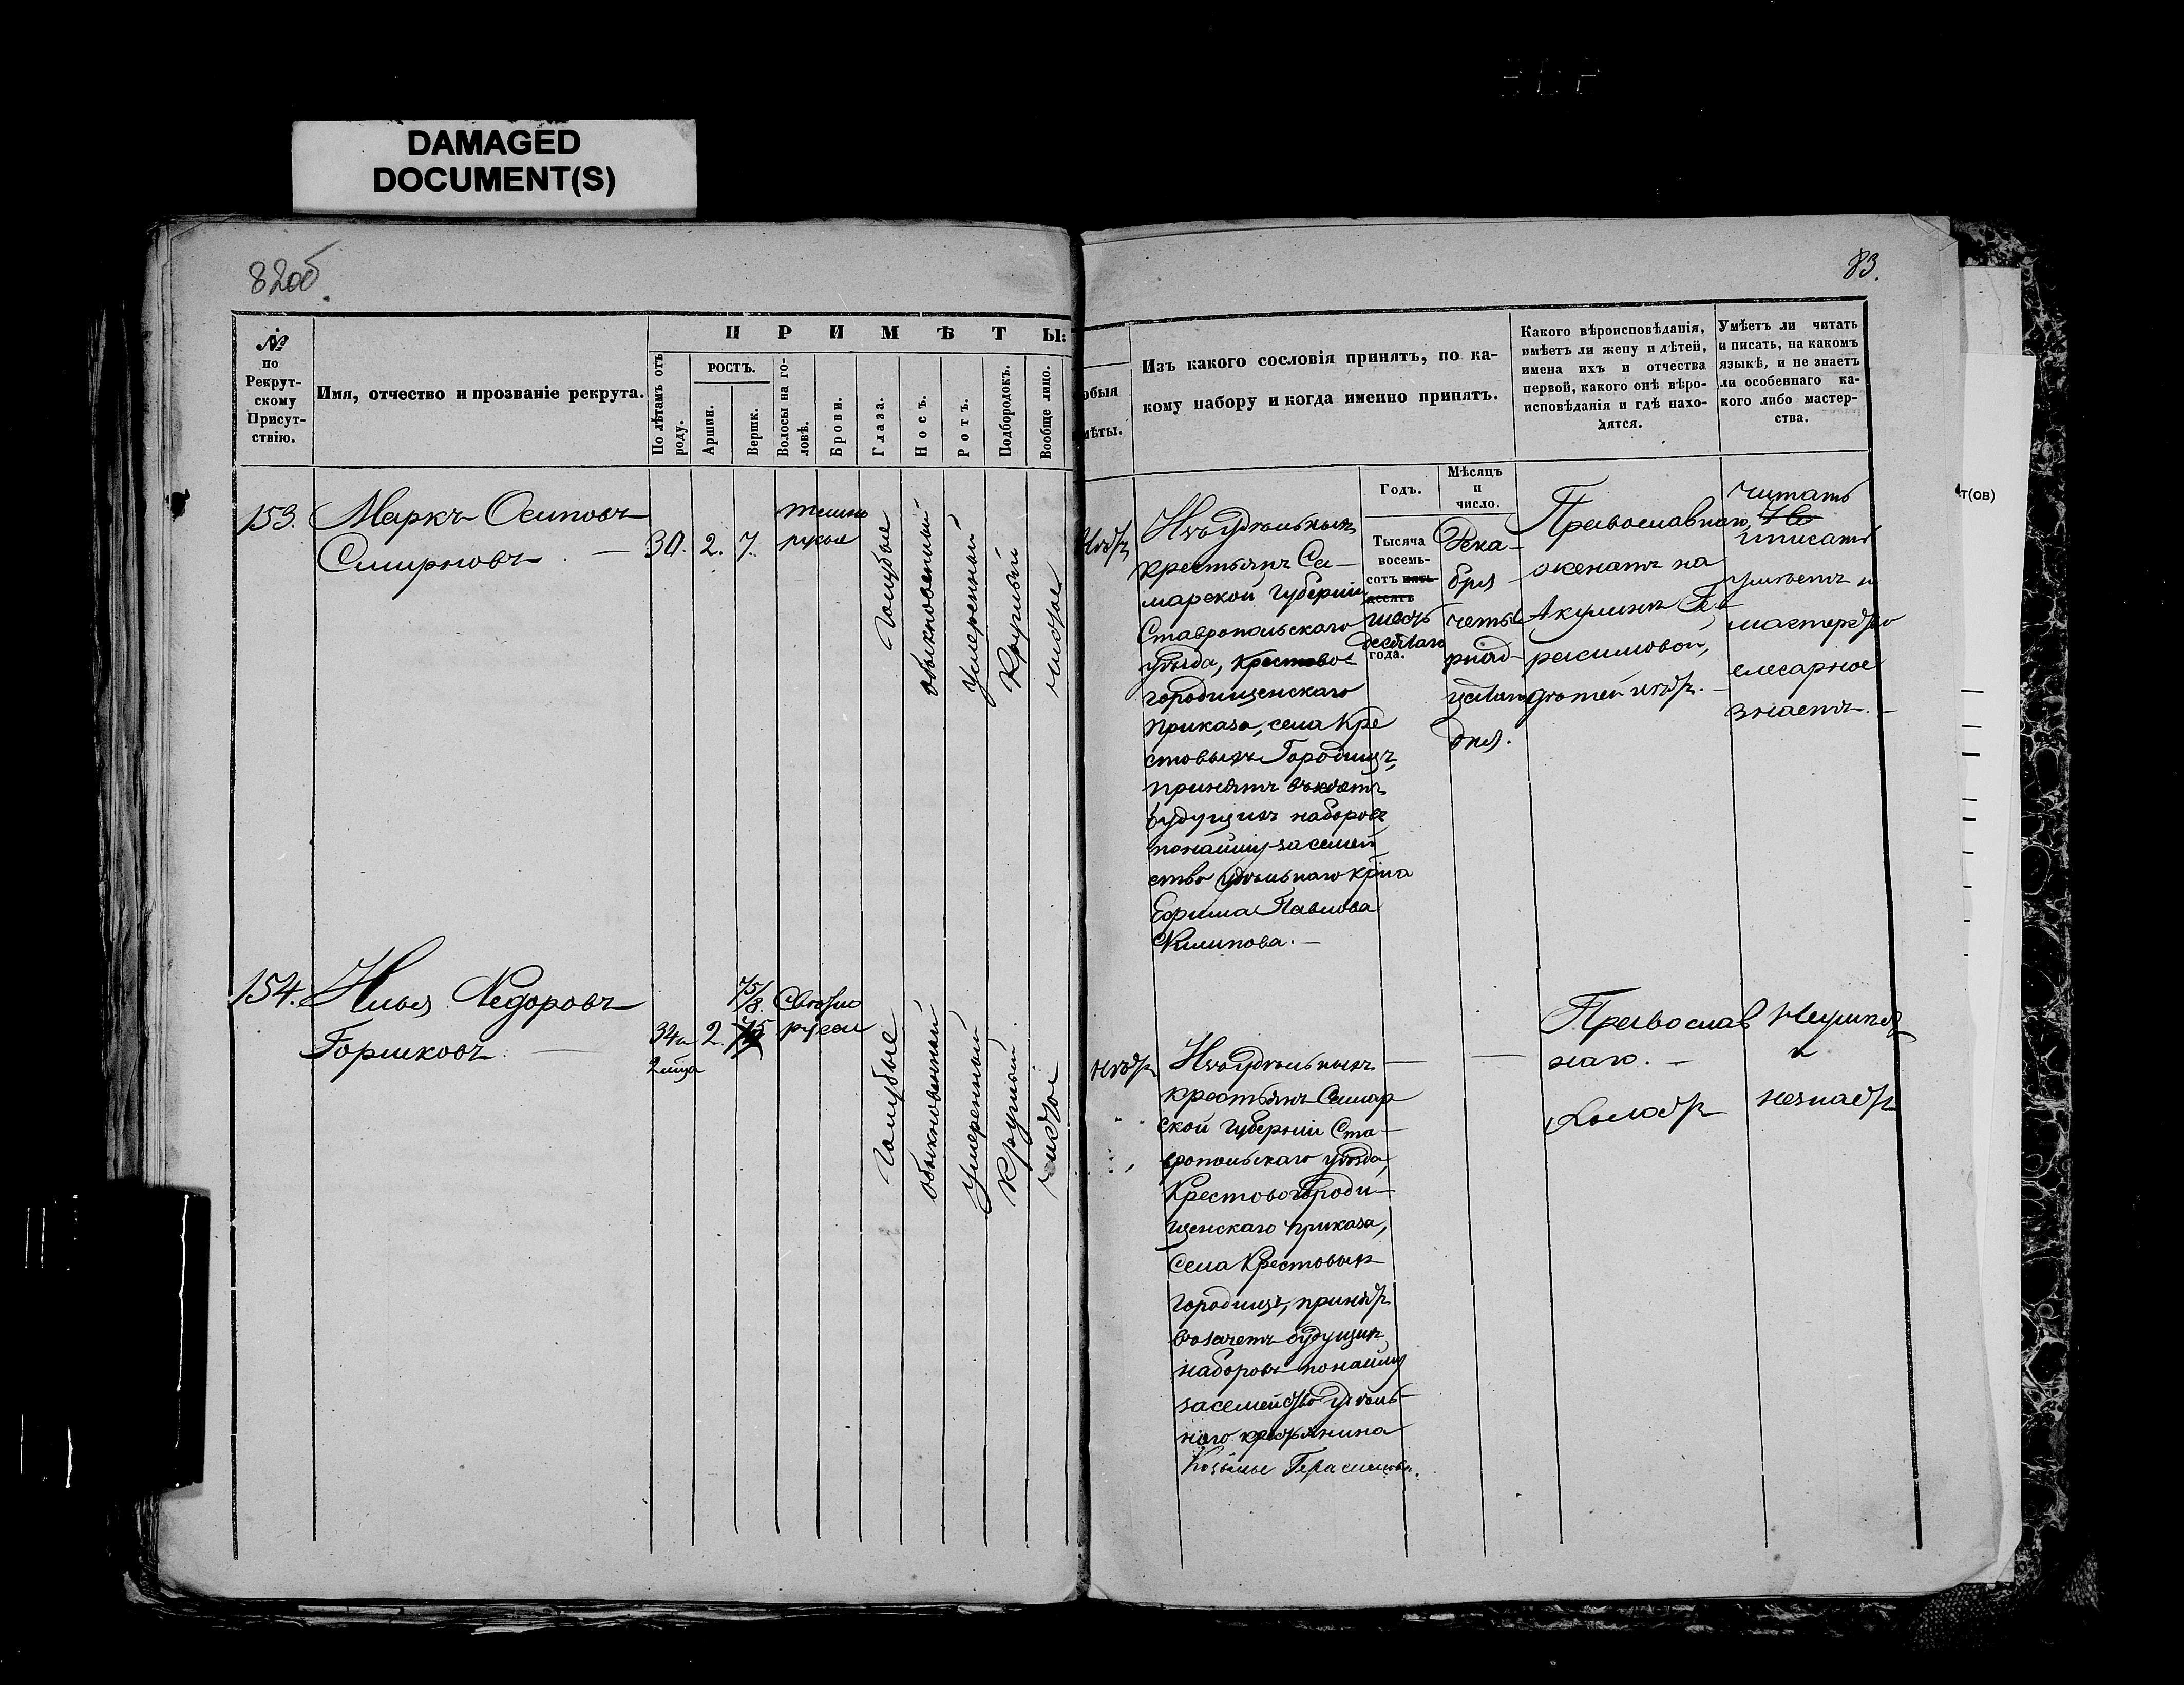 DAMAGED
DOCUMENT(S)
82об
83.
№
по
Рекрут-
скому
Присут-
ствію.
Имя, отчество и прозваніе рекрута.
ПРИМѢТЫ:
По лѣтамъ отъ
роду.
РОСТЪ.
Аршин.
Вершк.
Волосы на го-
ловѣ.
Брови.
Глаза.
Носъ.
Ротъ.
Подбородокъ.
Вообще лицо.
обыя
мѣты.
Изъ какого сословія принятъ, по ка-
кому набору и когда именно принятъ.
Какого вѣроисповѣданія,
имѣетъ ли жену и дѣтей,
имена ихъ и отчества
первой, какого онѣ вѣро-
исповѣданія и гдѣ нахо-
дятся.
Умѣетъ ли читать
и писать, на какомъ
языкѣ, и не знаетъ
ли особеннаго ка-
кого либо мастер-
ства.
Годъ.
Мѣсяцъ
и
число.
153.
Маркъ Осиповъ
Смирновъ. —
30.
2.
7.
темно
русые
голубые
обыкновенный
умѣренный
круглый
чистое
нѣтъ
Изъ удѣльныхъ
крестьянъ Са-
марской губерніи
Ставропольскаго
уѣзда, Крестово
городищенскаго
приказа, села Кре
стовыхъ Городищъ,
принятъ въ зачетъ
будущихъ наборовъ
по найму за семей
ство удѣльнаго кр-на
Ефима Павлова
Филипова. —
Тысяча
восемь-
сотъ пять-
десятъ
шесть
десятаго
года.
Дека-
бря
четы
рнад-
цатаго
дня.
Православнаго,
женатъ на
Акулинѣ Ге-
расимовой,
дѣтей нѣтъ. —
читать
Не
и писать
умѣетъ и
мастерство
слесарное
знаетъ. —
154.
Илья Ѳедоровъ
Горшковъ. —
34 и
2 м-ца
2.
7 5/8.
Свѣтло
русые
голубые
обыкновенный
умѣренный
круглый
чистое
нѣтъ
Изъ удѣльныхъ
крестьянъ Самар
ской губерніи Ста-
вропольскаго уѣзда,
Крестовогороди-
щенскаго приказа,
села Крестовыхъ
Городищъ, принятъ
въ зачетъ будущихъ
наборовъ по найму
за семейство удѣль-
наго крестьянина
Козьмы Герасимова.
Православ
наго. —
холостъ
Неумѣетъ
и
незнаетъ
т(ов)